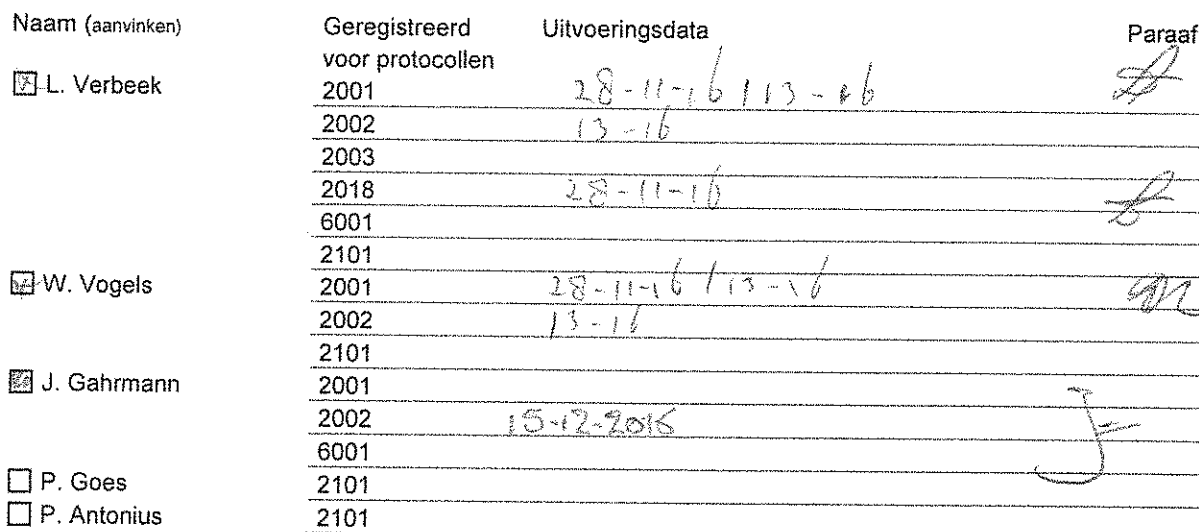 Naam (aanvinken) Geregistreerd voor protocollen Uitvoeringsdata Paraaf
L. Verbeek 2001 28-11-16 / 13-16
2002 13-16
2003
2018 28-11-16
6001
2101
W. Vogels 2001 28-11-16 / 13-16
2002 13-16
2101
J. Gahrmann 2001
2002 15-12-2016
6001
P. Goes 2101
P. Antonius 2101